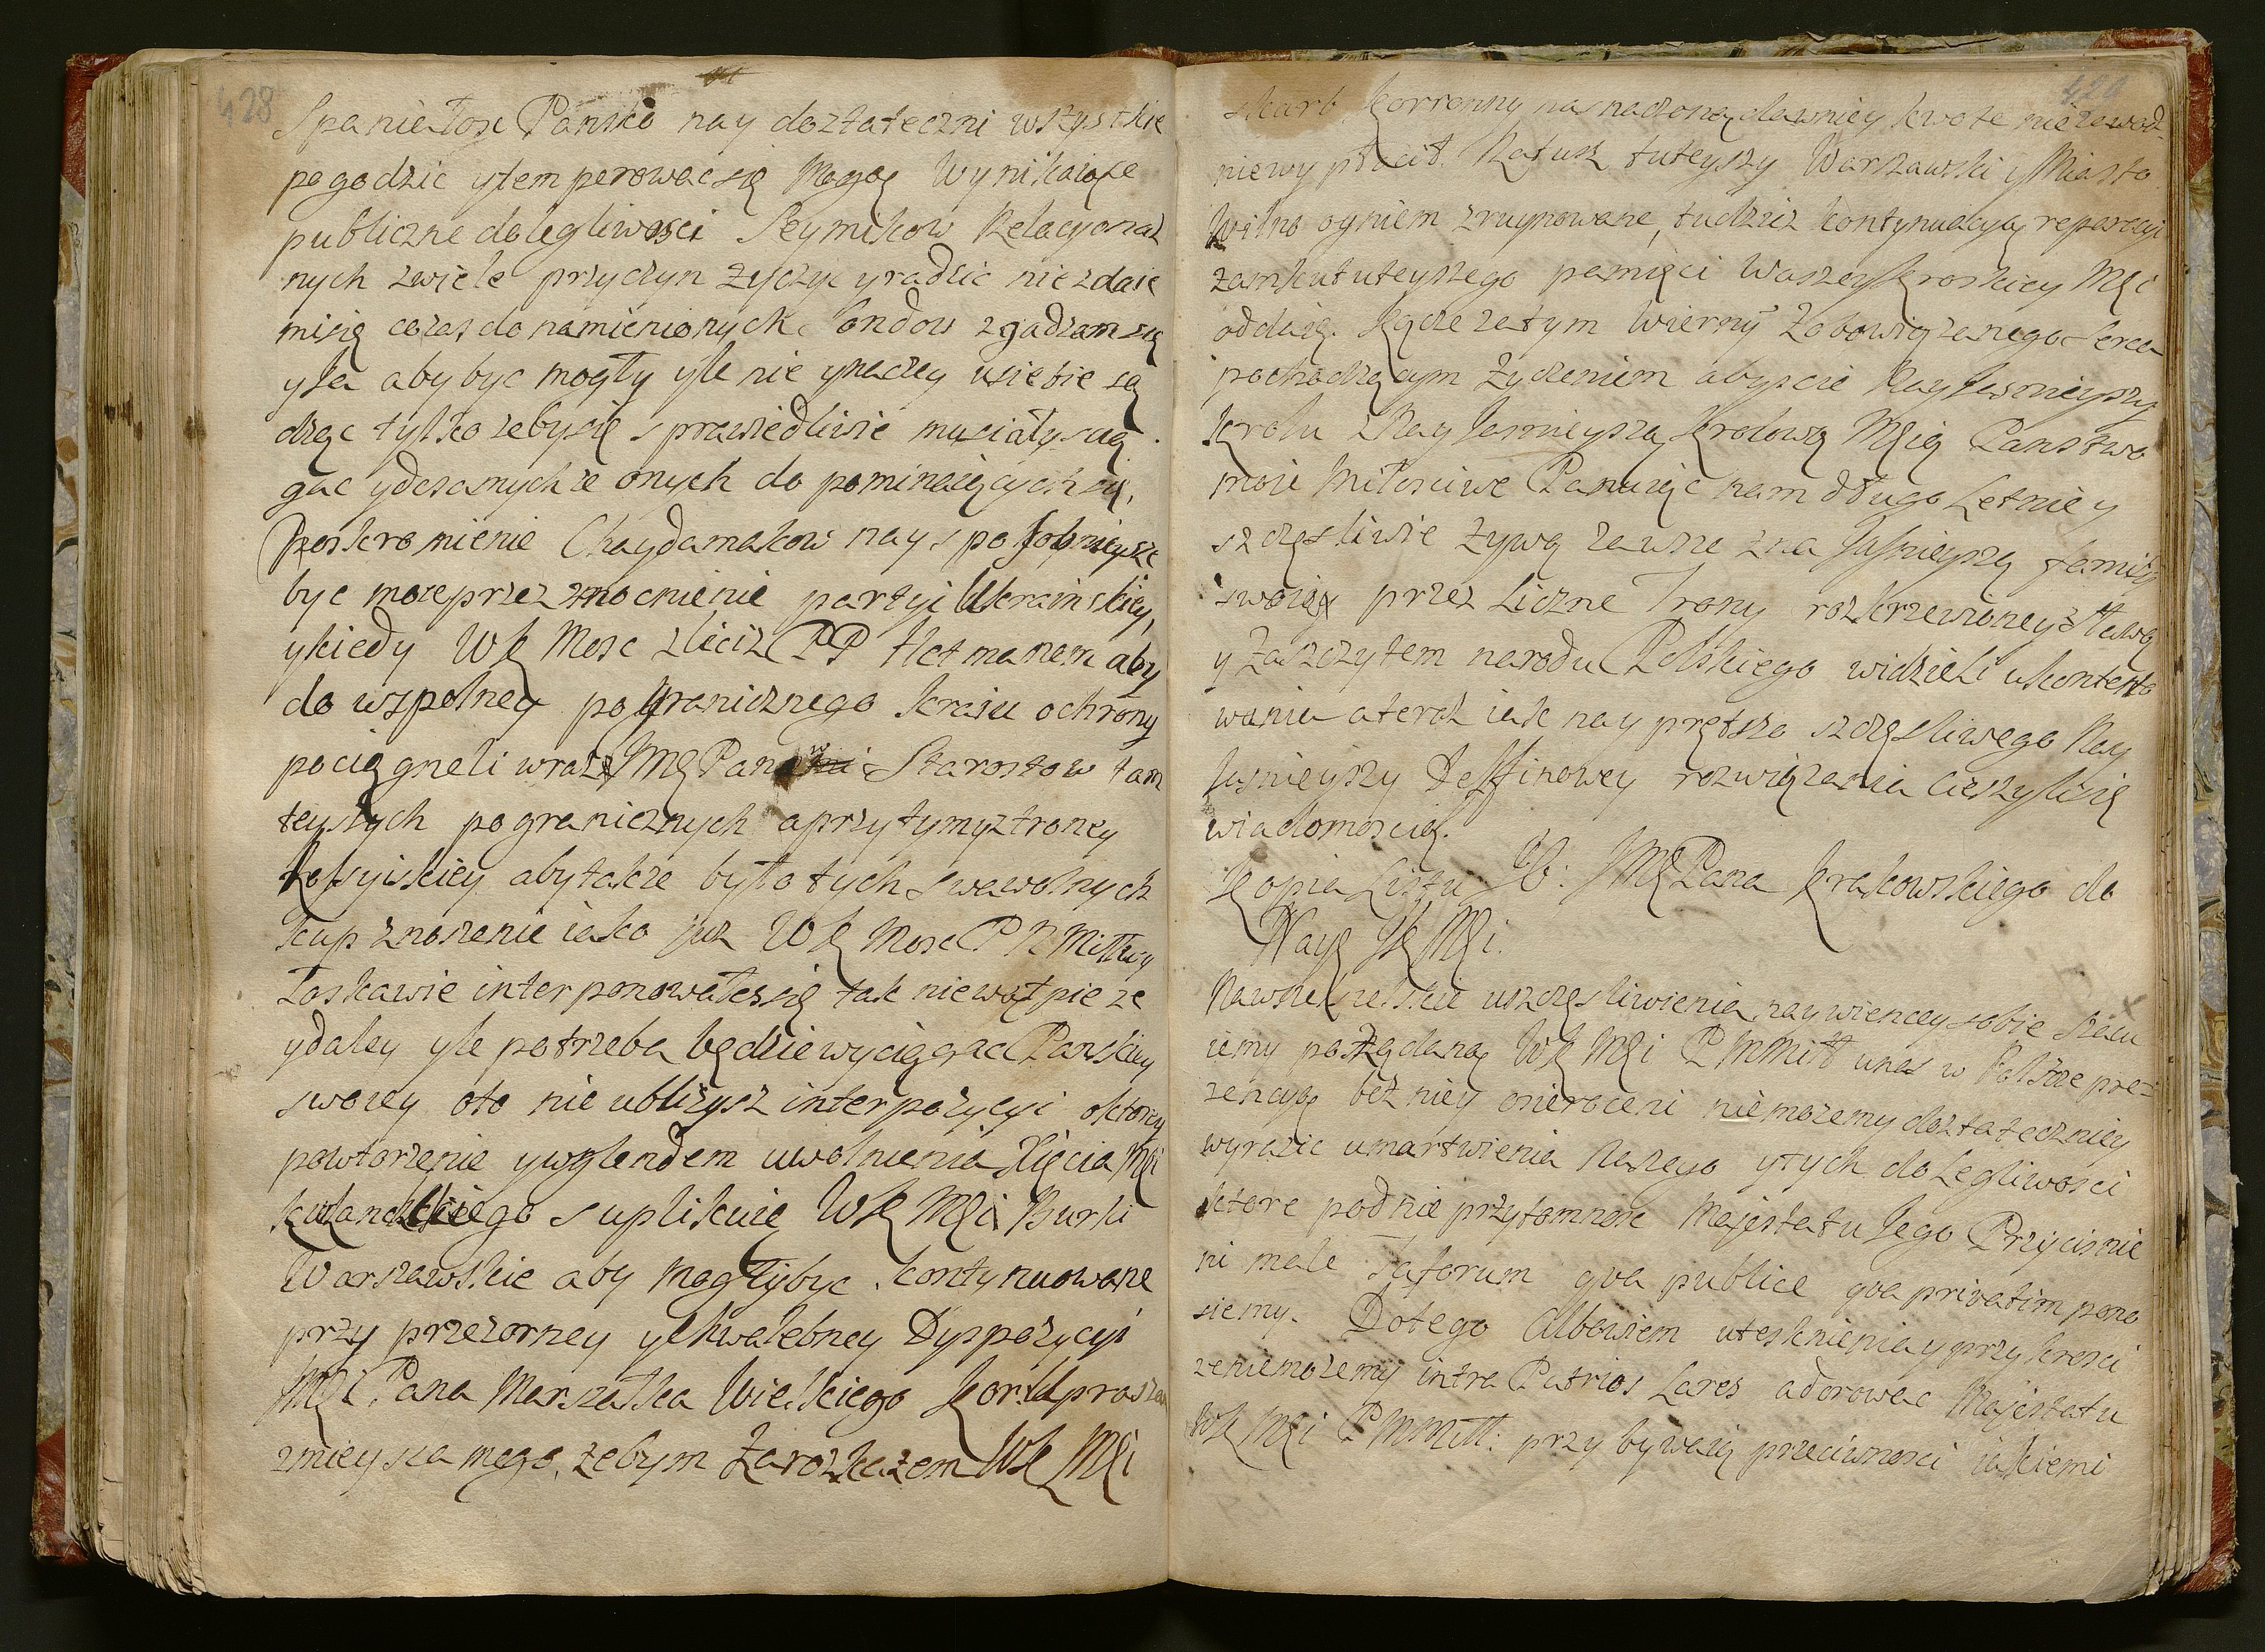 428
Spaniałosc Panska nay dostateczni wszystkie
pogodzic ytemperowacsię Mogą Wynikaiące
publiczne dolegliwosci Seymikow Relacyonal
nych zwiele przyczyn życzyc yradzic nie zdaie
misię cozas do namienionych Sondow zgadzam się
yia aby byc mogły yle nie ynaczey usiebie są
dząc tylko zebysię sprawiedliwie musiały sąg
gac ydosamychze onych do pominaiących się,
Poskromienie Chaydamakow nay sposobnieysze
byc moze przez zmocnienie partyi Ukrainskiey,
ykiedy WK Mosc zlicisz PP Hetmanom aby
do wspolney pogranicznego kraiu ochrony
pociągneli wraz JMć Panow Starostow tam
teyszych pogranicznych aprzytym yztroney
Rossyiskiey abytakze było tych swawolnych
kup znoszenie iako juz WK Mosc P N Miłłwy
Łaskawie interponowałessię tak niewątpie ze
ydaley yle potrzeba będzie wyciągac Panskiey
swoiey oto nie ublizysz interpozycyi oktorey
powtorzenie ywzglendem uwolnienia Xięcia JMci
kurlandzkiego suplikuię WK Mći Burki
Warszawskie aby mogły byc kontynuowane
przy przezorney ychwalebney Dyspozycyi
JMći Pana Marszałka Wielkiego Kor: Uprosza
zmieysca mego, zebym zarozkazem WK Mći
429
skarb Korronny nasnaczoną dawniey kwote niezawod-
niewypłacił. Ratusz tuteyszy Warszawski yMiasto
Wilno ogniem zruynowane, tudziez kontynuacyą reparacyi
zamkututeyszego pamięci Waszey Kroskiey Mći
oddaię. Kącze zatym Wiernym Zobowiązanego Serca
pochodzącym Życzeniem abyscie Nayiasnieyszy
Krolu zNay Jasnieyszą Krolową Mcią Panstwo
moie Miłosciwe Panuiąc nam długo Letnie y
szczęsliwie żywą zawsze zna Jasnieyszą familią
swoią przez Liczne Trony rozkrzewioney zsławą
y Zaszczytem narodu Polskiego widzieli ukontento
wania ateraz iak nay prętsza szczęsliwego Nay
Jasnieyszy Delfinowey rozwiązania cieszylisię
wiadomoscią.
Kopia Listu JO: JMć Pana Krakowskiego do
Nayę JK Mći.
Nawszelkie uszczęsliwienia naywiencey sobie szacu
iemy pożądaną WK Mći P N Miłł unas w Polszcze pre-
zencyą bez niey osieroceni niemozemy dostateczniey
wyrazic umartwienia Naszego ytych dolegliwosci
ktore podnie przytomnosc Majestatu Jego Przycisnie
ni male Fatorum qva publice qva privatim pono
siemy. Dotego Albowiem utesknienia y przykrosci
zeniemozemy intra Patrios Lares adorowac Majestatu
WK Mći P N Miłł: przybywaią przeciwnosci iakiemi